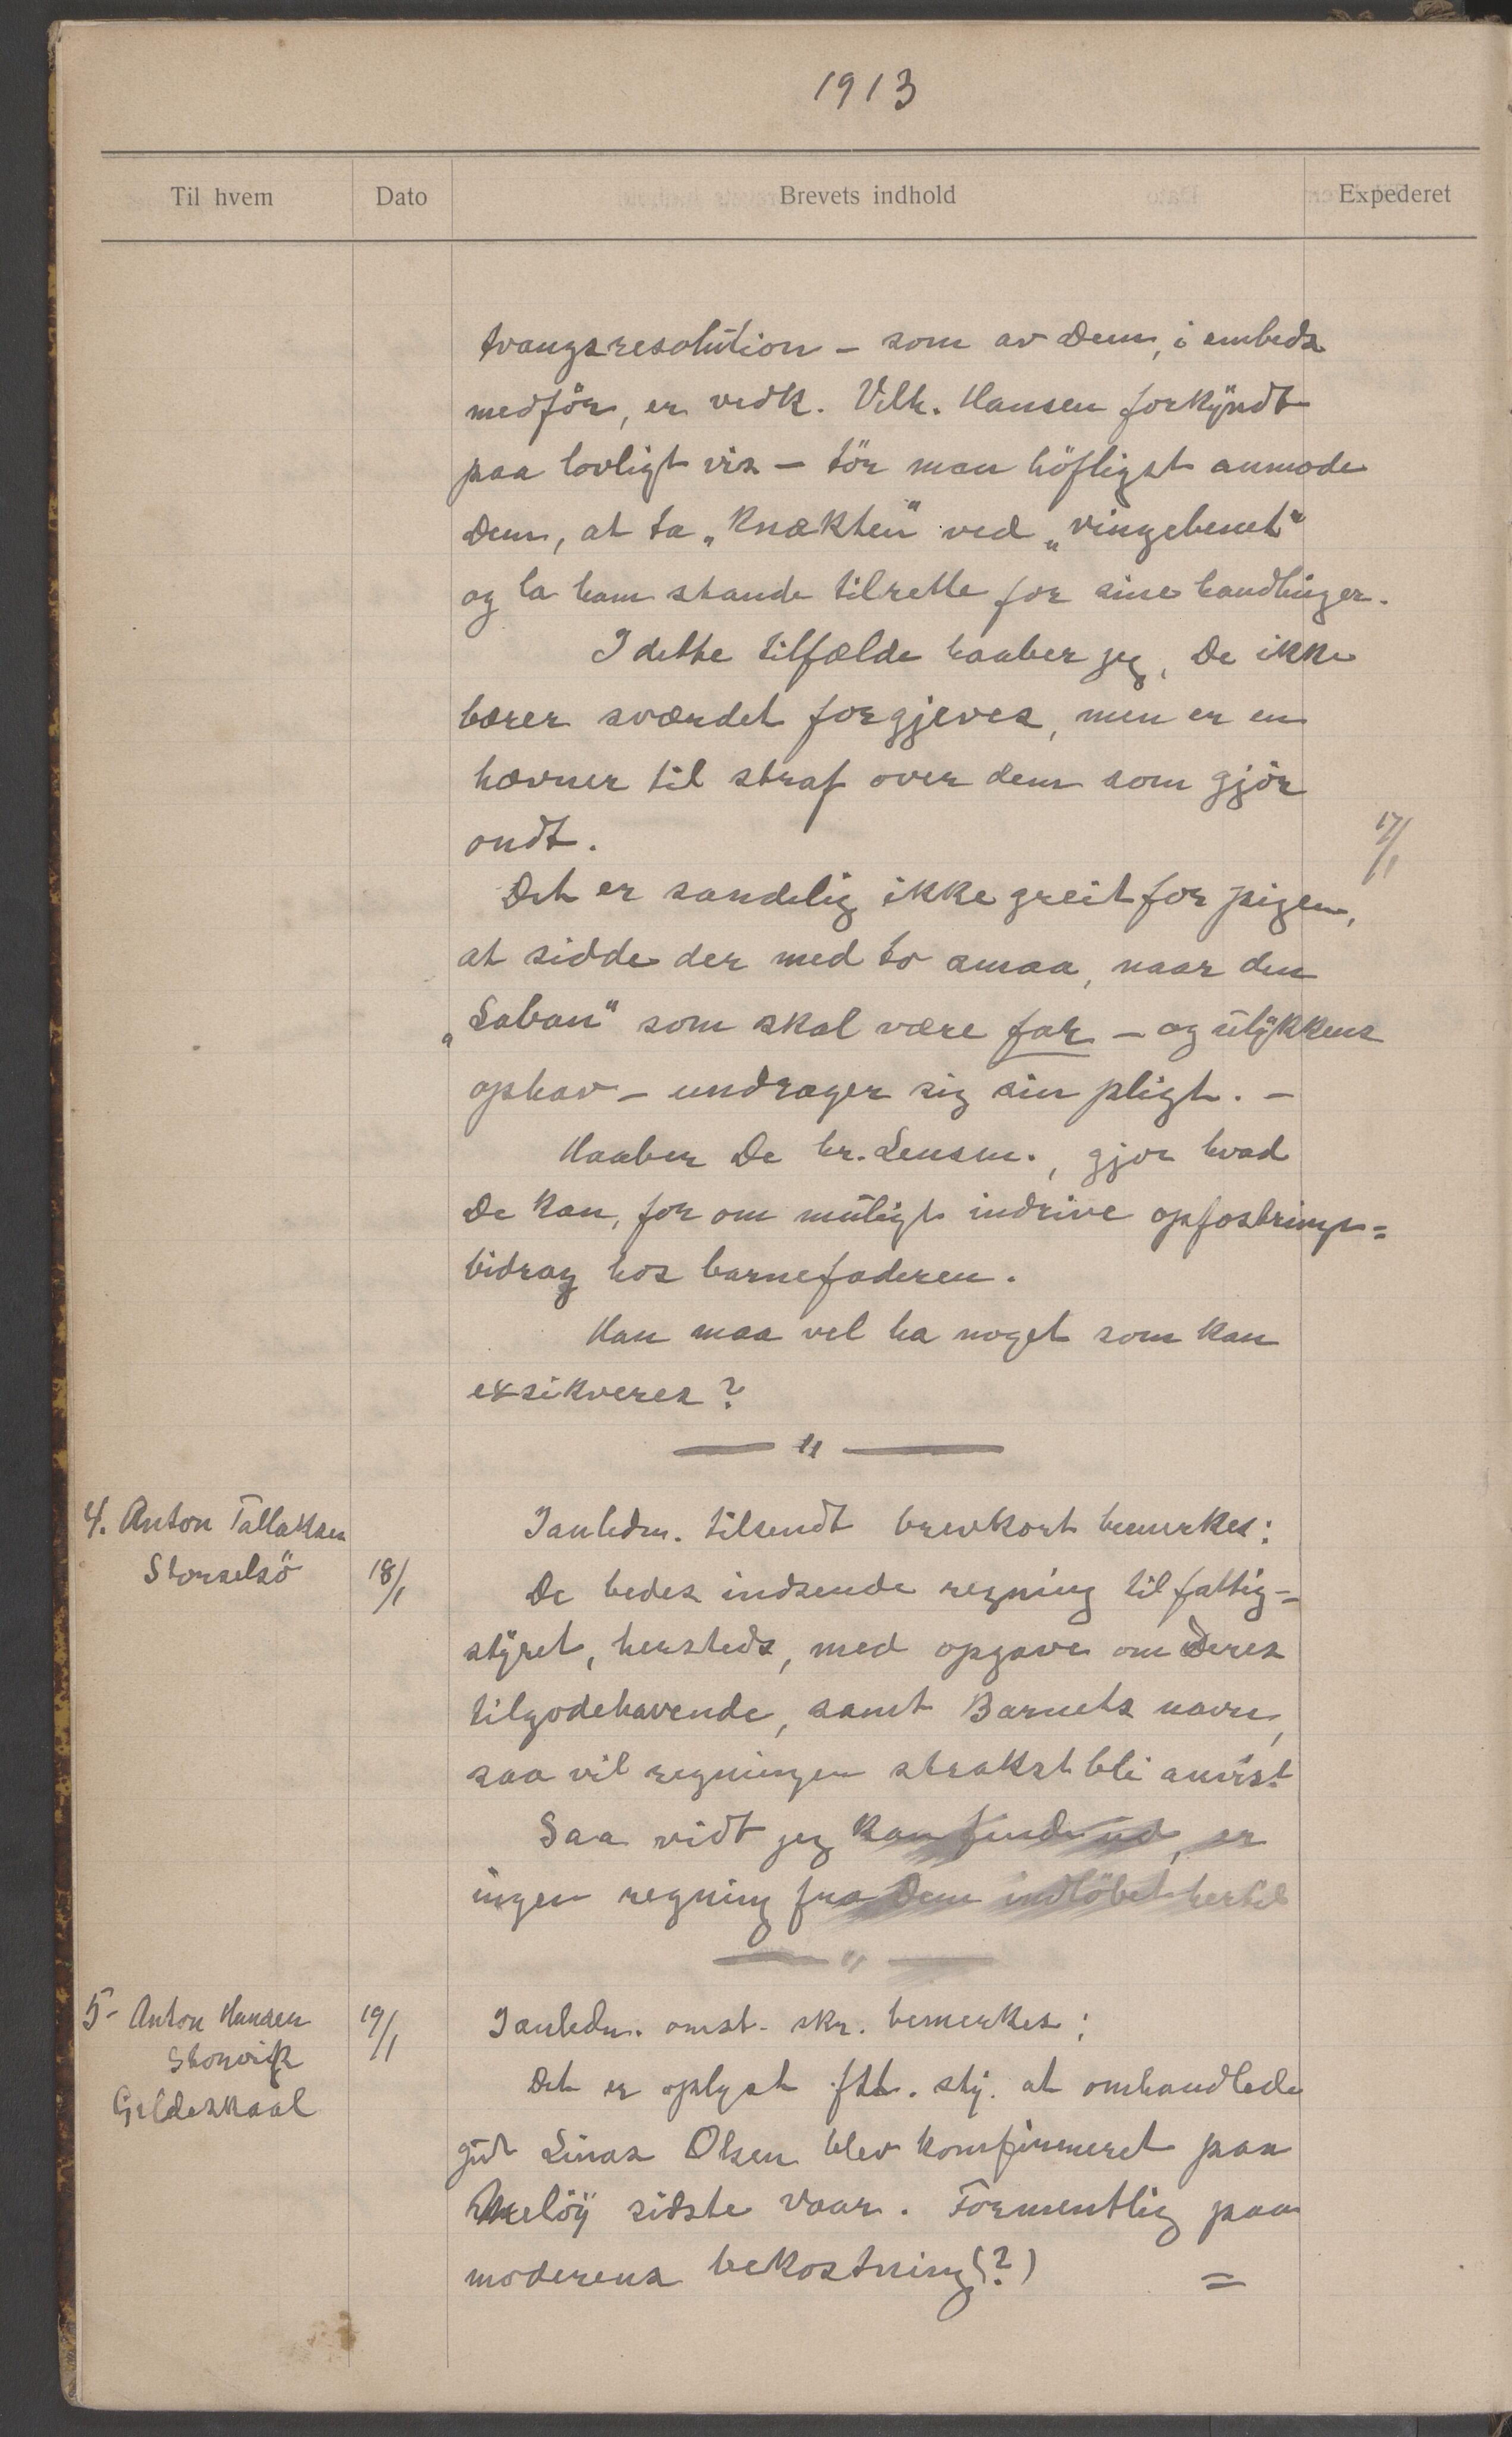 1913
Til hvem Dato Brevets indhold Expederet
tvangsresolution - som av Dem, i embeds
medför, er vedk. Vilh. Hansen forkyndt
paa lovligt vis - tör man höfligst anmode
Dem, at ta „Knækten" ved „vingebenet"
og la ham stande tilrette for sine handlinger.
I dette tilfælde haaber jeg, De ikke
bærer sværdet forgjeves, men er en
hævner til straf over dem som gjör
ondt.
17/1
Det er sandelig ikke greit for pigen,
at sidde der med to smaa, naar den
„Laban" som skal være far - og ulykkens
ophav - undrager sig sin pligt. -
Haaber De hr. Lensm., gjor hvad
De kan, for om muligt indrive opfostrings=
bidrag hos barnefaderen.
Han maa vel ha noget som kan
exsikveres?
— " —
4. Anton Tallaksen
Storselsö
18/1
I anledn. tilsendt brevkort bemerkes:
De bedes indsende regning til fattig=
styret, hersteds, med opgave om Deres
tilgodehavende, samt Barnets navn,
saa vil regningen strakst bli anvist
Saa vidt jeg kan finde ud, er
ingen regning fra Dem indlöbet hertil
— " —
5- Anton Hansen
Storvik
Gildeskaal
19/1
I anledn. omst. skr. bemerkes:
Det er oplyst ftt. sty. at omhandlede
gut Linas Olsen blev konfirmeret paa
Melöy sidste vaar. Formentlig paa
moderens bekostning(?) =